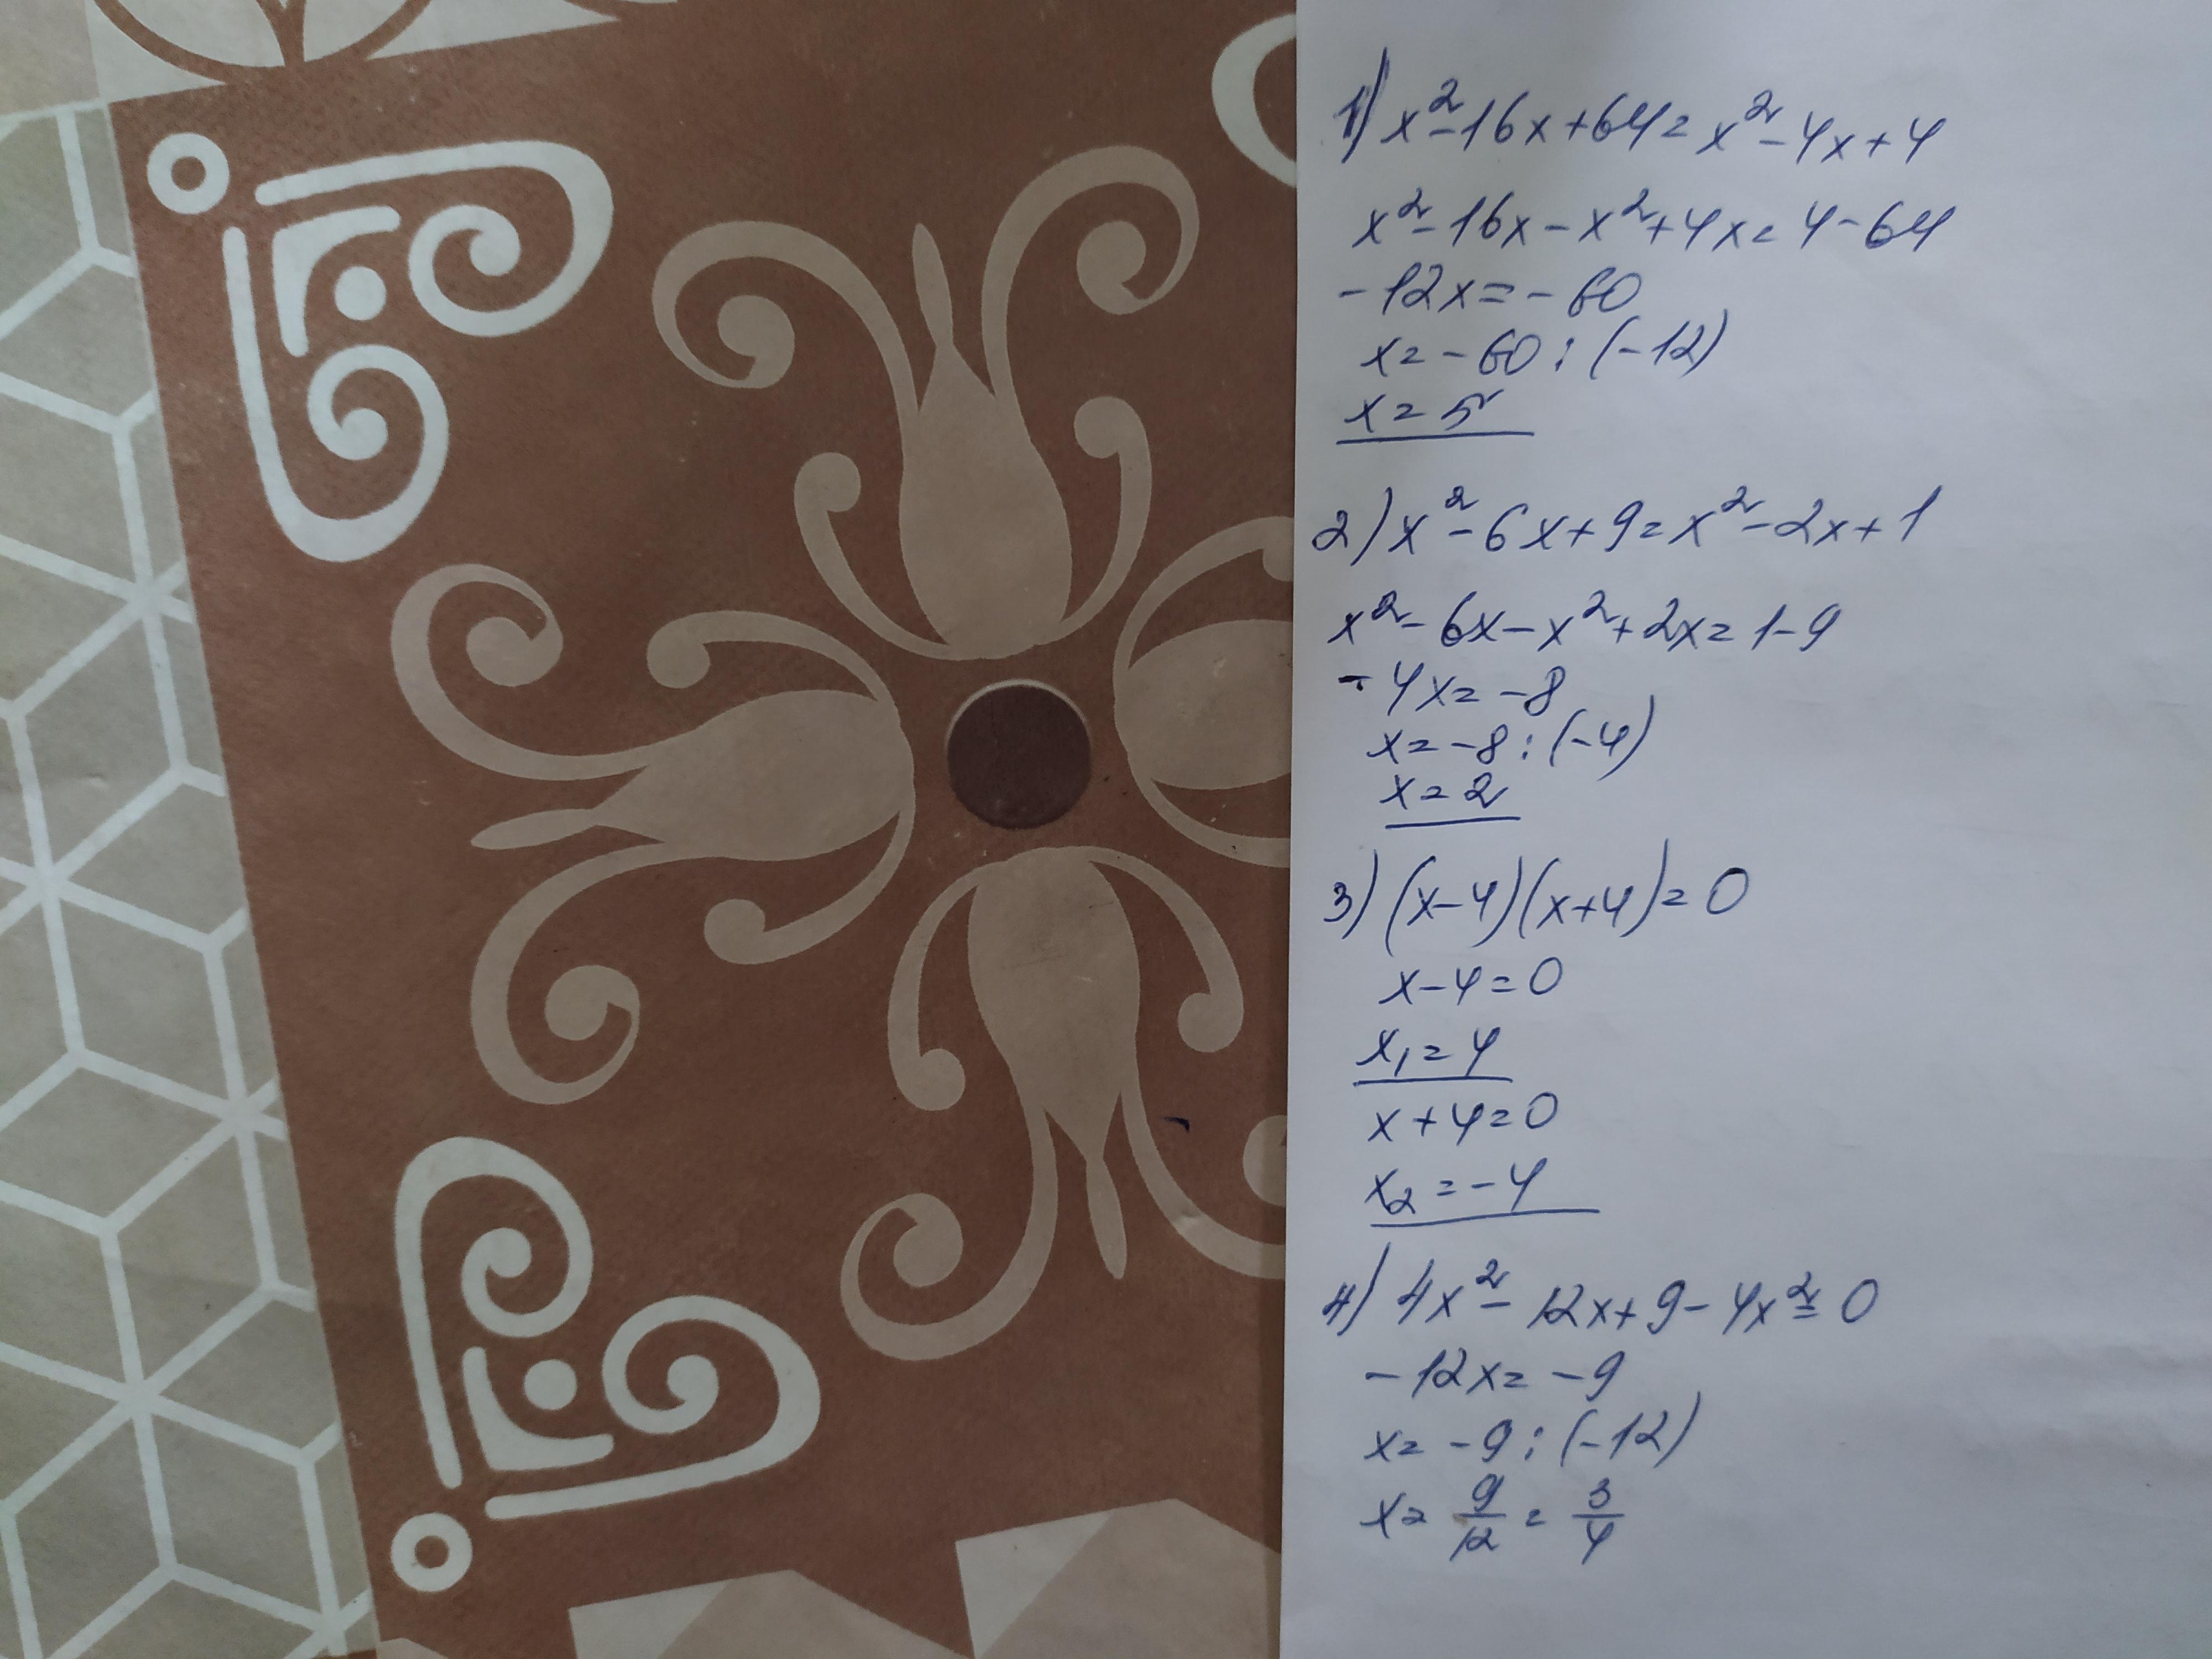 1) x²-16x+64=x²-4x+4
x²-16x-x²+4x=4-64
-12x=-60
x=-60:(-12)
x=5
2) x²-6x+9=x²-2x+1
x²-6x-x²+2x=1-9
-4x=-8
x=-8:(-4)
x=2
3) (x-4)(x+4)=0
x-4=0
x₁=4
x+4=0
x₂=-4
4) 4x²-12x+9-4x²=0
-12x=-9
x=-9:(-12)
x=9/12=3/4